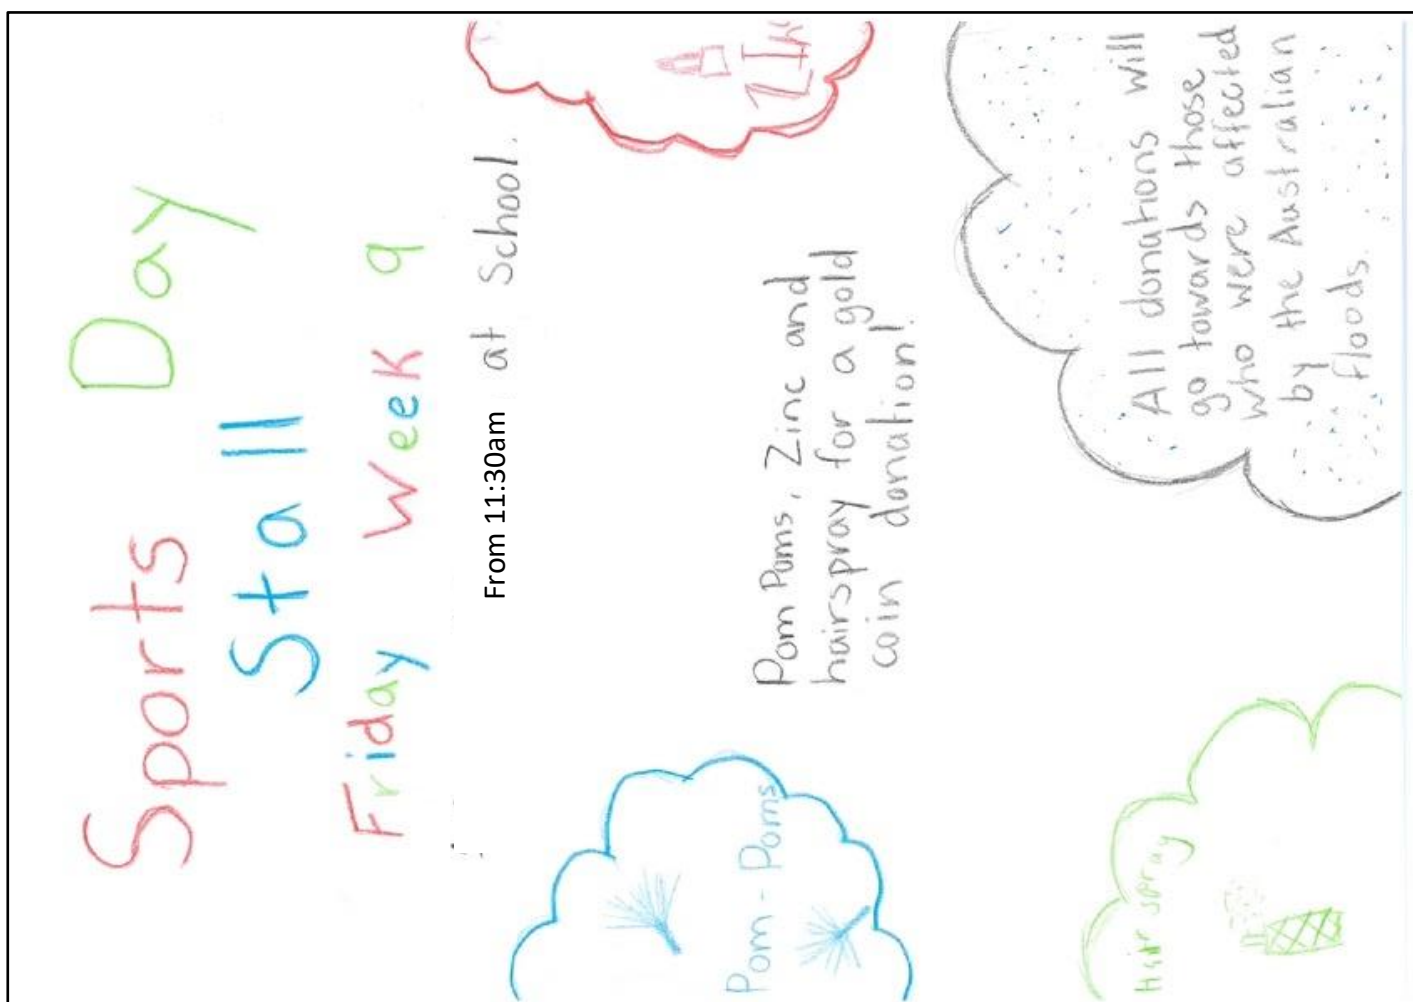 Sports Day
Stall
Friday Week 9
From 11:30am at School.
Pom-Poms
Pom Poms, Zinc and
hairspray for a gold
coin donation!
Hair spray
All donations will
go towards those
who were affected
by the Australian
floods.